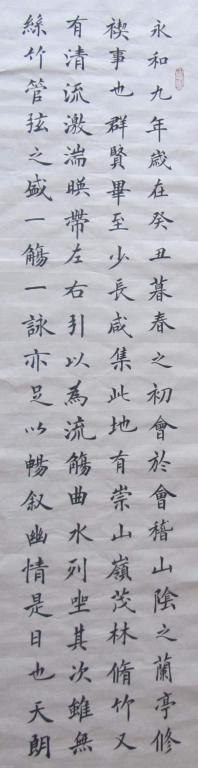 永和九年歲在癸丑暮春之初會於會稽山陰之蘭亭修
禊事也群賢畢至少長咸集此地有崇山嶺茂林脩竹又
有清流激湍暎帶左右引以為流觴曲水列坐其次雖無
絲竹管弦之盛一觴一詠亦足以暢叙幽情是日也天朗